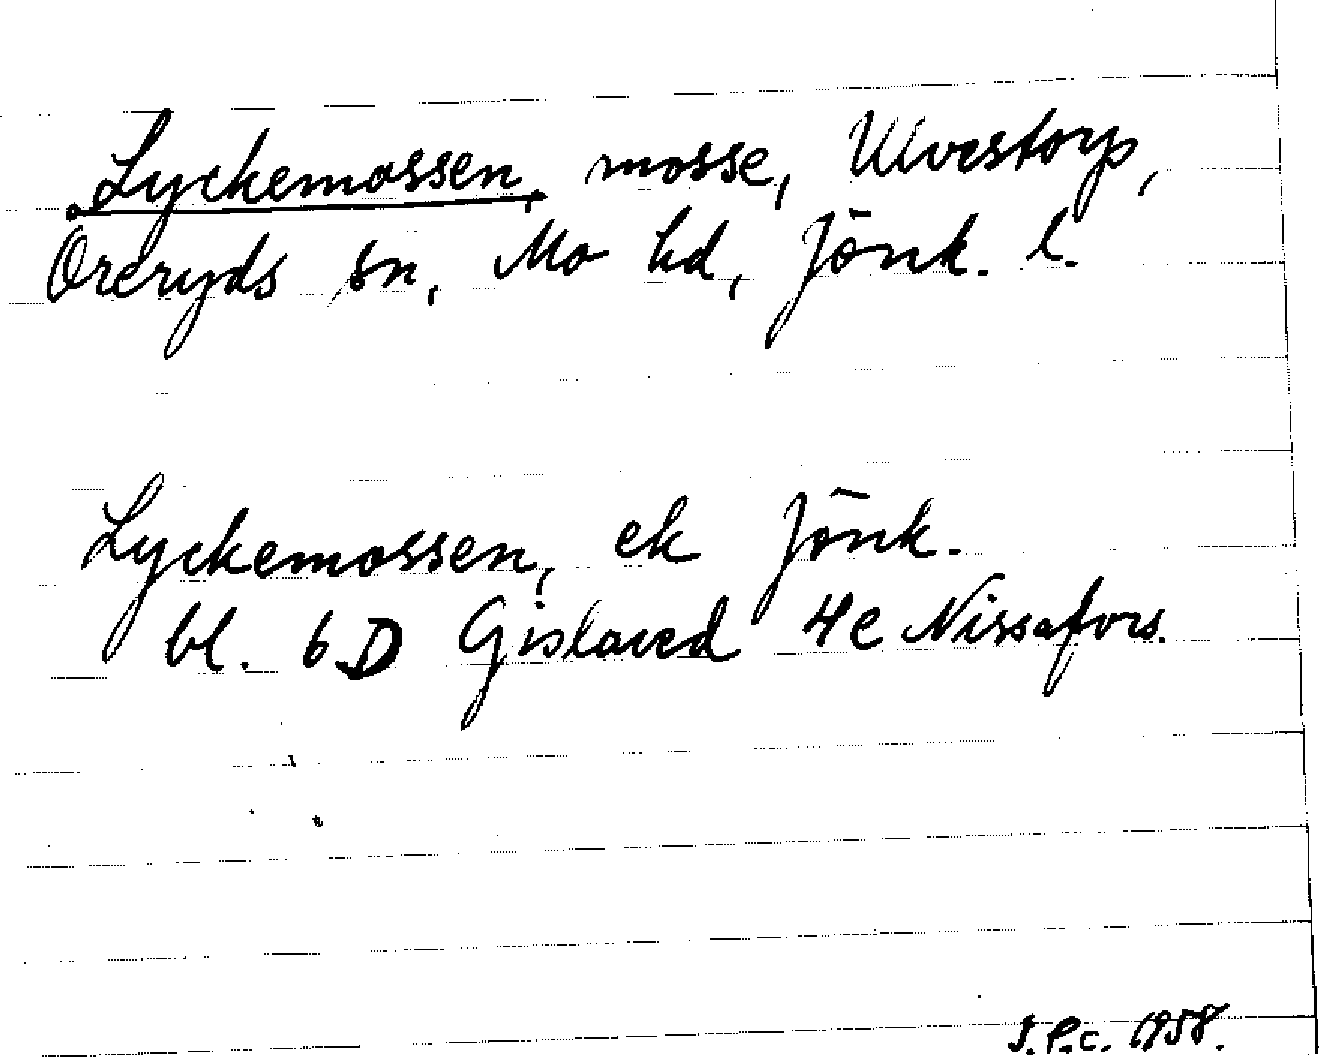 Lyckemossen, mosse, Ulvestorp,
Öreryds sn, Mo hd, Jönk. l.
Lyckemossen, ek Jönk.
bl. 6D Gislaved 4e Nissafors.
J.P.c. 1958.